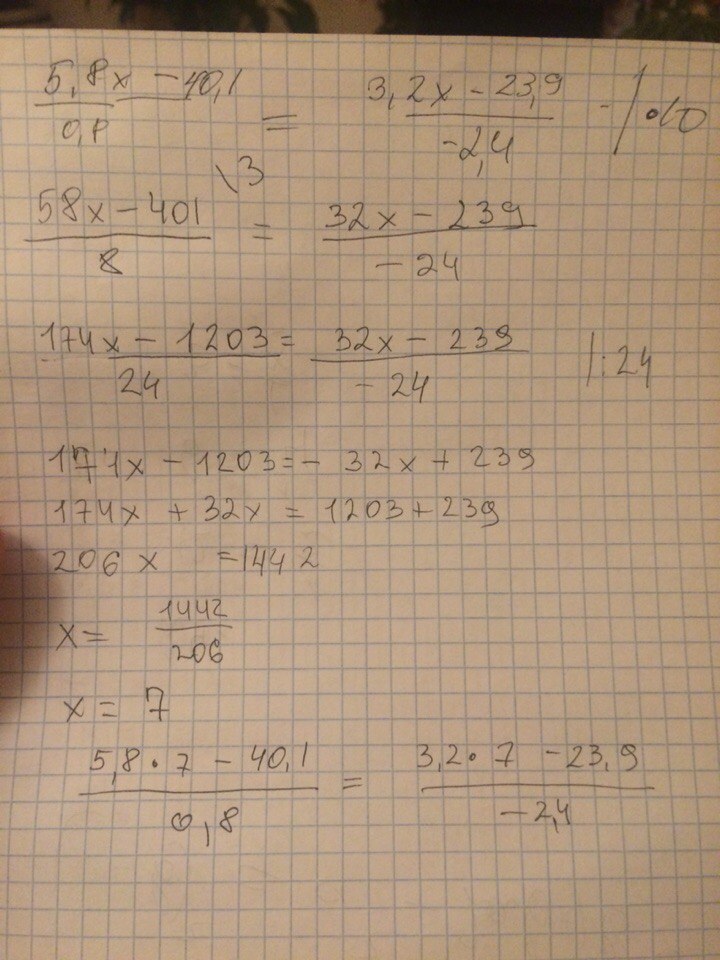 5,8x - 40,1 / 0,8 = 3,2x - 23,9 / -2,4 |•10
58x - 401 / 8 \3 = 32x - 239 / -24
174x - 1203 / 24 = 32x - 239 / -24 |:24
174x - 1203 = - 32x + 239
174x + 32x = 1203 + 239
206x = 1442
x = 1442 / 206
x = 7
5,8 • 7 - 40,1 / 0,8 = 3,2 • 7 - 23,9 / -2,4